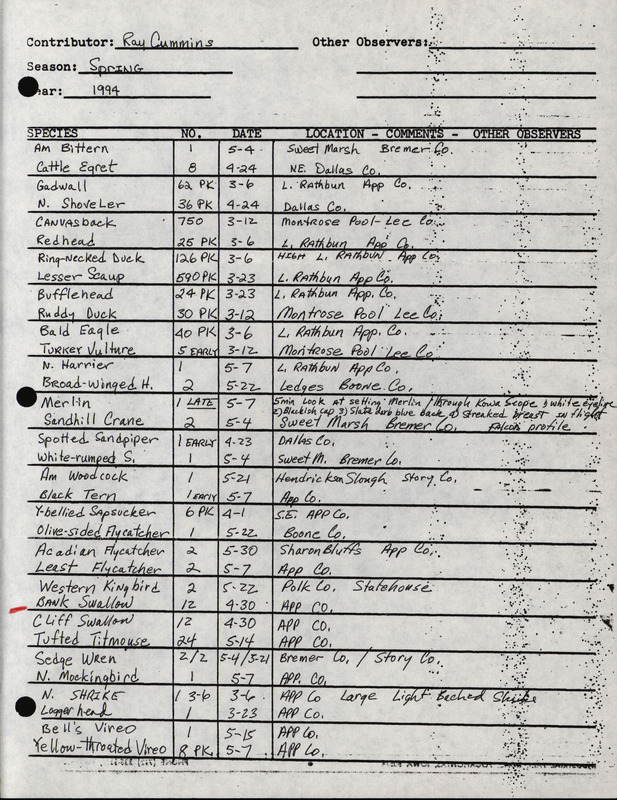 Contributor: Ray Cummins Other Observers:
Season: SPRING
ear: 1994
SPECIES NO. DATE LOCATION - COMMENTS - OTHER OBSERVERS
Am Bittern 1 5-4 Sweet Marsh Bremer Co.
Cattle Egret 8 4-24 NE. Dallas Co.
Gadwall 62 PK 3-6 L. Rathbun App Co.
N. Shoveler 36 PK 4-24 Dallas Co.
CANVASback 750 3-12 Montrose Pool - Lee Co.
Redhead 25 PK 3-6 L. Rathbun App Co.
Ring-Necked Duck 126 PK 3-6 HIGH L. RATHBUN App Co.
Lesser Scaup 590 PK 3-23 L. Rathbun App Co.
Bufflehead 24 PK 3-23 L. Rathbun App. Co.
Ruddy Duck 30 PK 3-12 Montrose Pool Lee Co.
Bald Eagle 40 PK 3-6 L. Rathbun App. Co.
Turkey Vulture 5 EARLY 3-12 Montrose Pool Lee Co
N. Harrier 1 5-7 L. Rathbun App Co.
Broad-Winged H. 2 5-22 Ledges Boone Co.
Merlin 1 LATE 5-7 5 min Look at setting Merlin / through Kowa Scope 1) white eyeline
2) Blackish cap 3) Slate dark blue back, 4) streaked breast in flight
Sandhill Crane 2 5-4 Sweet Marsh Bremer Co. Falcon profile
Spotted Sandpiper 1 EARLY 4-23 DALLAS Co.
White-rumped S. 1 5-4 Sweet M. Bremer Co.
Am Woodcock 1 5-21 Hendrickson Slough Story Co.
Black Tern 1 EARLY 5-7 App Co.
Y-bellied Sapsucker 6 PK 4-1 S.E. APP Co.
Olive-sided Flycatcher 1 5-22 Boone Co.
Acadian Flycatcher 2 5-30 Sharon Bluffs App Co.
Least Flycatcher 2 5-7 App Co.
Western Kingbird 2 5-22 Polk Co. Statehouse
BANK Swallow 12 4-30 APP CO.
Cliff Swallow 12 4-30 APP CO.
Tufted Titmouse 24 5-14 APP CO.
Sedge Wren 2/2 5-4/5-21 Bremer Co. / Story Co.
N. Mockingbird 1 5-7 APP. CO.
N. SHRIKE 1 3-6 3-6 APP Co Large Light Backed Shrike
Loggerhead 1 3-23 APP Co.
Bell's Vireo 1 5-15 App Co.
Yellow-throated Vireo 8 PK 5-7 App Co.